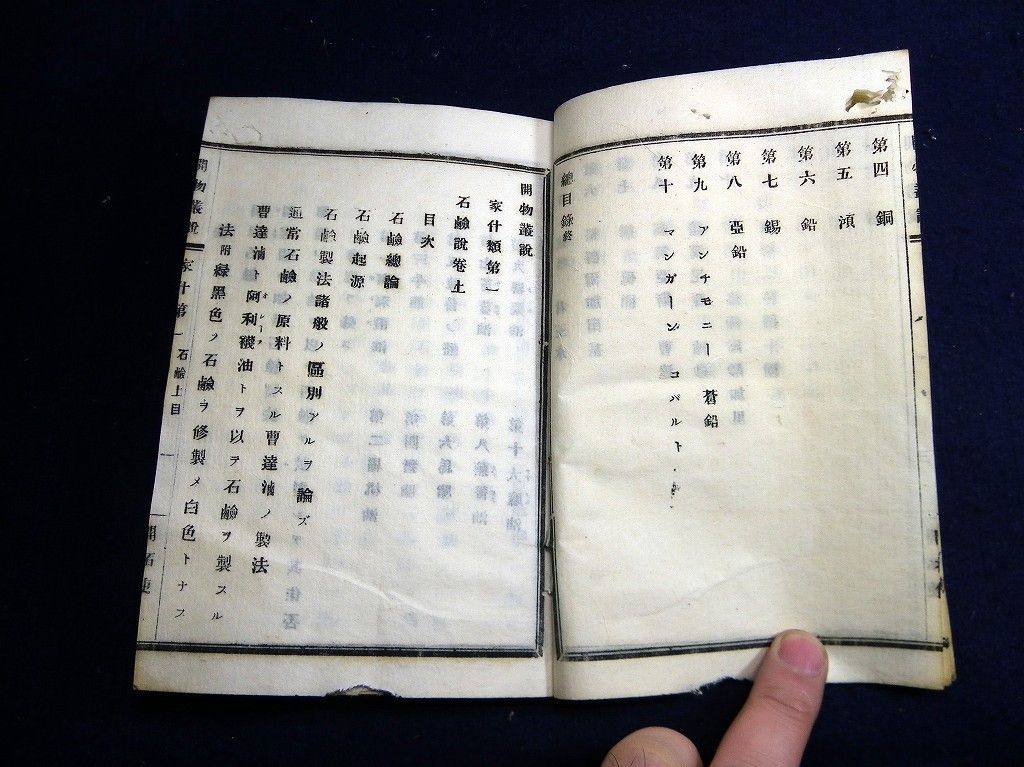 第四 銅
第五 澒
第六 鉛
第七 錫
第八 亞鉛
第九 アンチモニー 蒼鉛
第十 マンガーン コバルト
總目錄終
開物叢說
家什類第一
石鹼說卷上
目次
石鹼總論
石鹼起源
石鹼製法諸般ノ區別アルヲ論ズ
通常石鹼ノ原料トスル曹達滷ノ製法
曹達滷ト阿利襪油トヲ以テ石鹼ヲ製スル
オレーフ
法 附 綠黑色ノ石鹼ヲ修製メ白色トナス
開物叢說 家什第一 石鹼上目